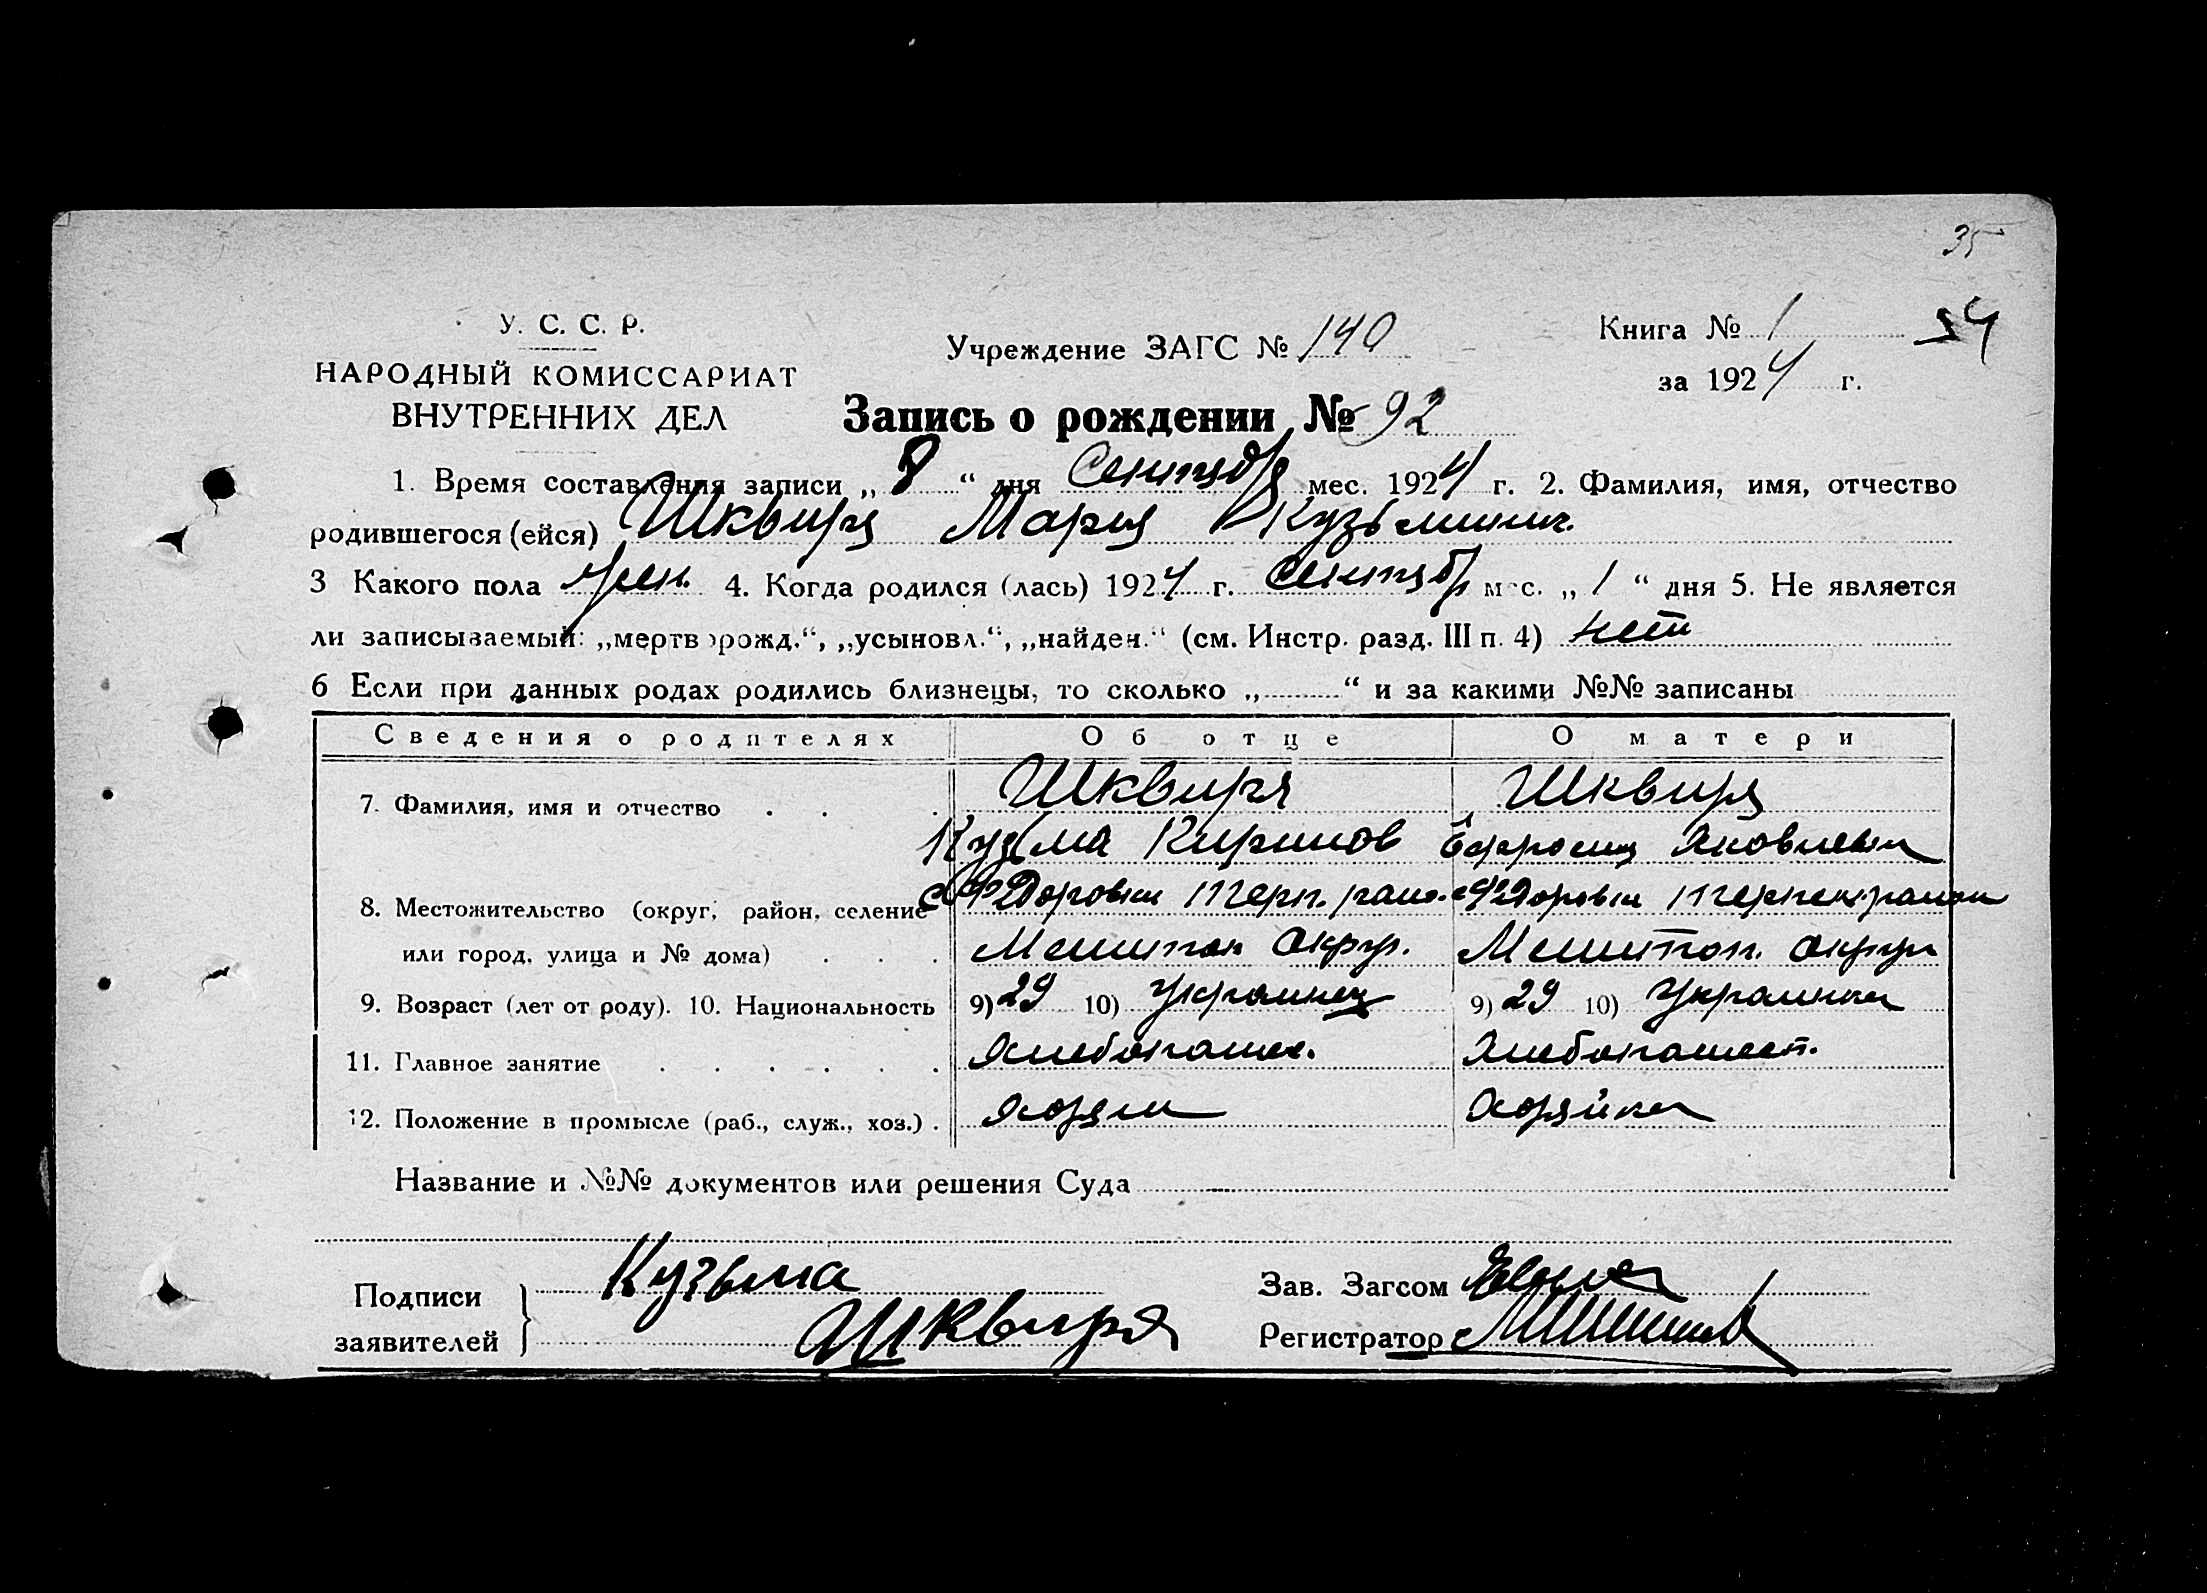 35
У. С. С. Р.
НАРОДНЫЙ КОМИССАРИАТ
ВНУТРЕННИХ ДЕЛ
Учреждение ЗАГС № 140
Книга № 1
34
за 1924 г.
Запись о рождении № 92
1. Время составления записи „ 8 “ дня Сентября мес. 1924 г. 2. Фамилия, имя, отчество
родившегося (ейся) Шквиря Мария Кузьминич.
3 Какого пола жен. 4. Когда родился (лась) 1924 г. Сентябр мес. „ 1 “ дня 5. Не является
ли записываемый: „мертворожд.“, „усыновл.“, „найден.“ (см. Инстр. разд. III п. 4) нет
6 Если при данных родах родились близнецы, то сколько „ “ и за какими №№ записаны
Сведения о родителях Об отце О матери
7. Фамилия, имя и отчество Шквиря Шквиря
Кузьма Киримов Ефросиц Яковлевна
8. Местожительство (округ, район, селение Терп. райо.
или город, улица и № дома) Мелитоп округ. Мелитоп. округа
9. Возраст (лет от роду). 10. Национальность 9) 29 10) Украинец 9) 29 10) Украинка
11. Главное занятие Хлебопашес. Хлебопашест.
12. Положение в промысле (раб., служ., хоз.) Хозяин Хозяйка
Название и №№ документов или решения Суда
Подписи заявителей
Кузьма
Шквиря
Зав. Загсом
Регистратор